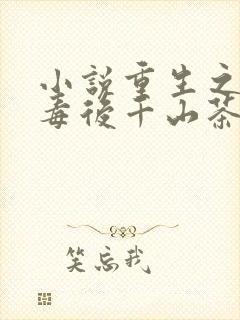 小說重生之
毒後千山茶
笑忘我